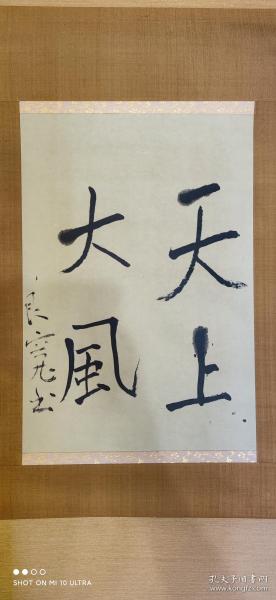 天上
大風
良寛書
SHOT ON MI 10 ULTRA
孔夫子旧书网
www.kongfz.com